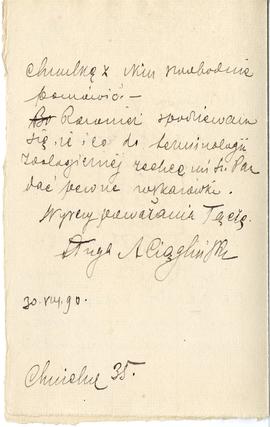 chwilkę z Nim swobodnie
pomówić. —
Również spodziewam
się, że i co do terminologii
zoologicznej zechce mi Sz. Pan
dać pewne wskazówki.
Wyrazy poważania łączę
Sługa A Ciągliński
30. VIII. 90.
Chmielna 35.